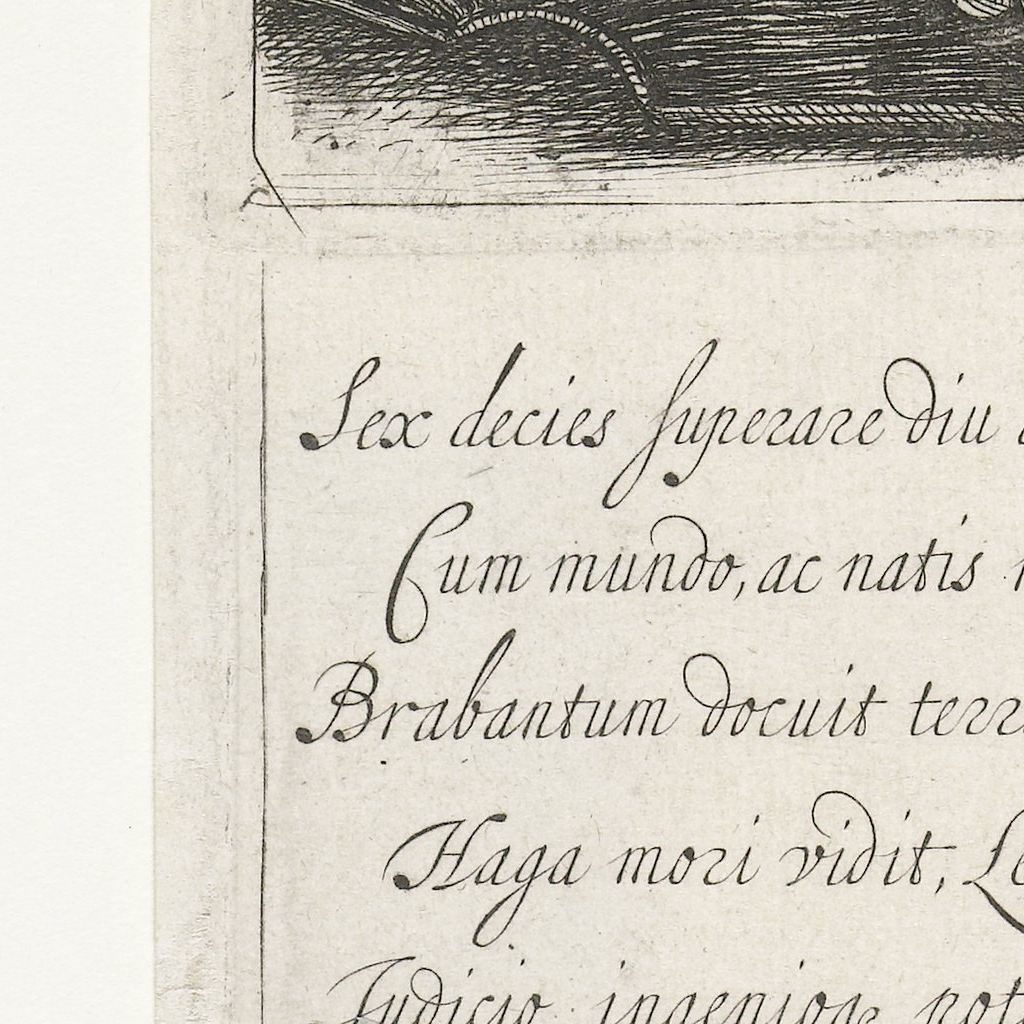 Sex decies superare diu
Cum mundo, ac natis
Brabantum docuit terr
Haga mori vidit, Le
Judicio, ingenioq₃ pot